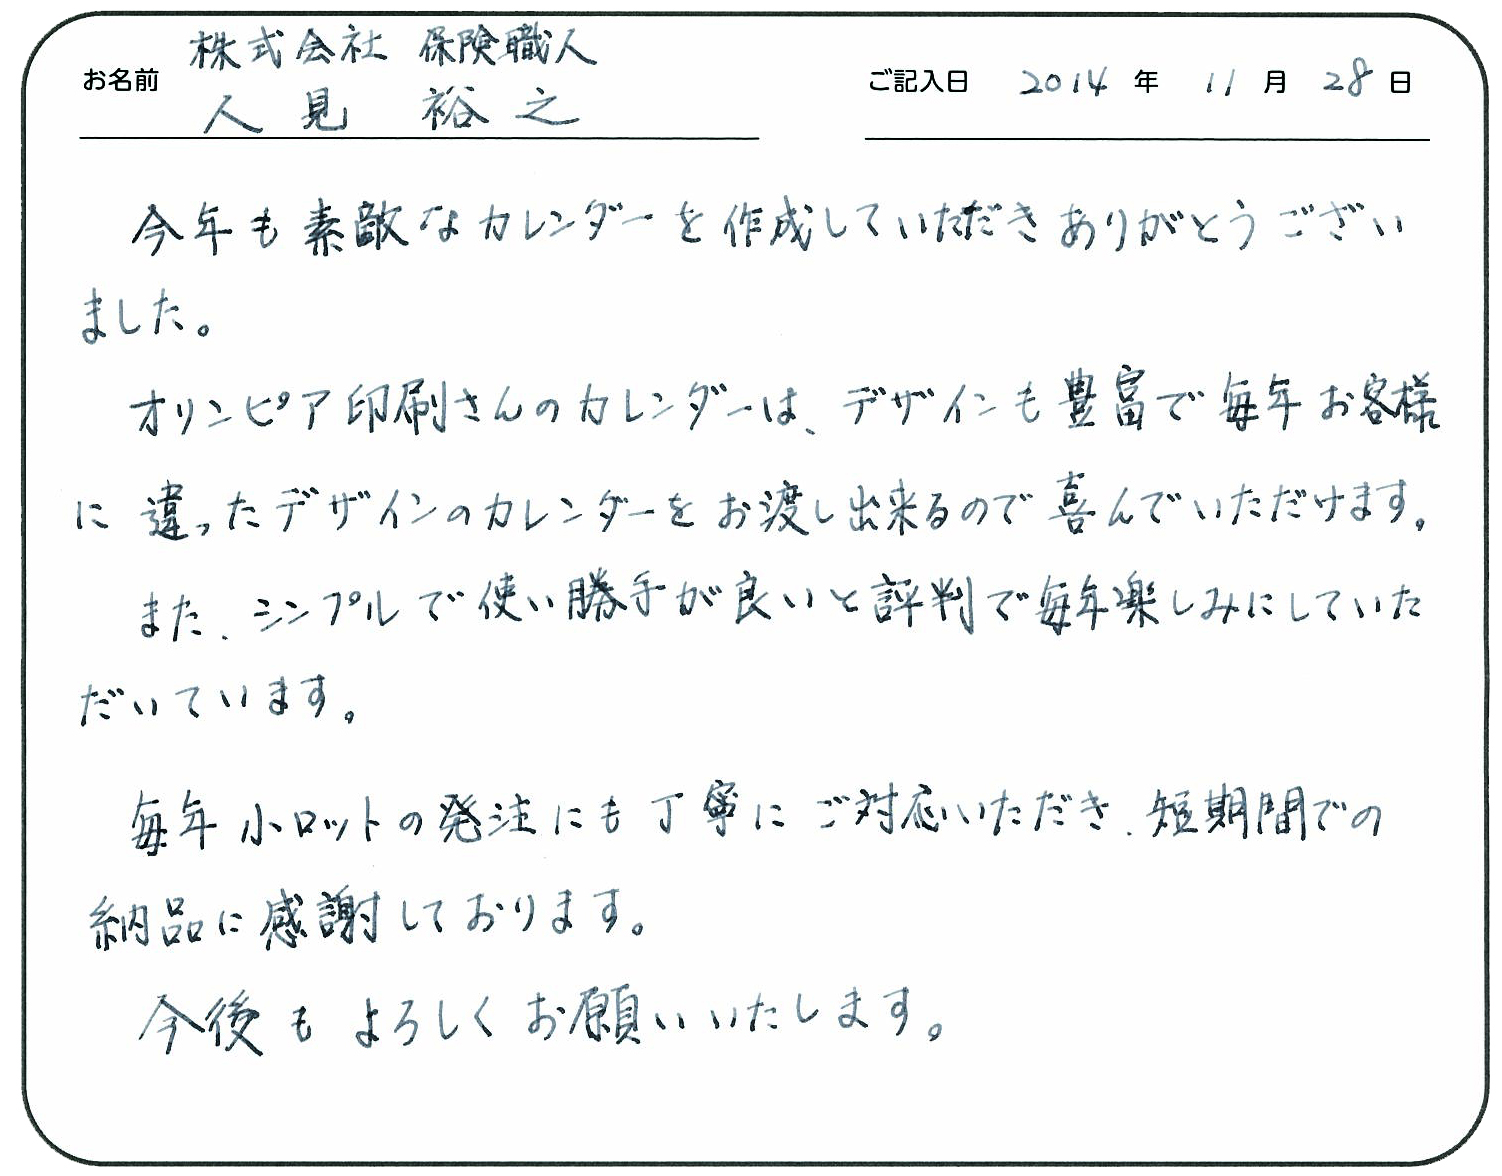 株式会社 保険職人
お名前 人見 裕之
ご記入日 2014 年 11 月 28 日
今年も素敵なカレンダーを作成していただきありがとうござい
ました。
オリンピア印刷さんのカレンダーは、デザインも豊富で毎年お客様
に違ったデザインのカレンダーをお渡し出来るので喜んでいただけます。
また、シンプルで使い勝手が良いと評判で毎年楽しみにしていた
だいています。
毎年小ロットの発注にも丁寧にご対応いただき、短期間での
納品に感謝しております。
今後もよろしくお願いいたします。